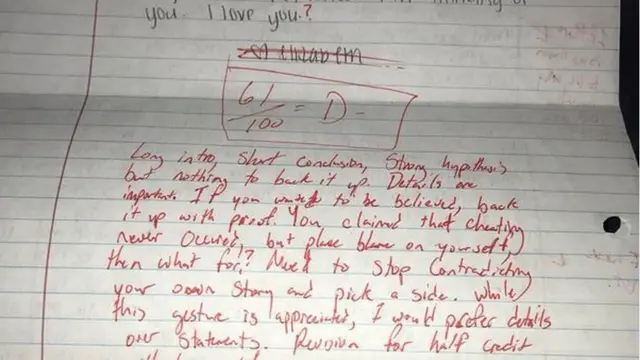 you. I love you.?
61
100 = D -
Long intro, short conclusion, strong hypothesis
but nothing to back it up. Details are
important. If you want to be believed, back
it up with proof. You claimed that cheating
never occured, but place blame on yourself,
then what for!? Need to stop contradicting
your own story and pick a side. While
this gesture is appreciated, I would prefer details
over statements. Revision for half credit